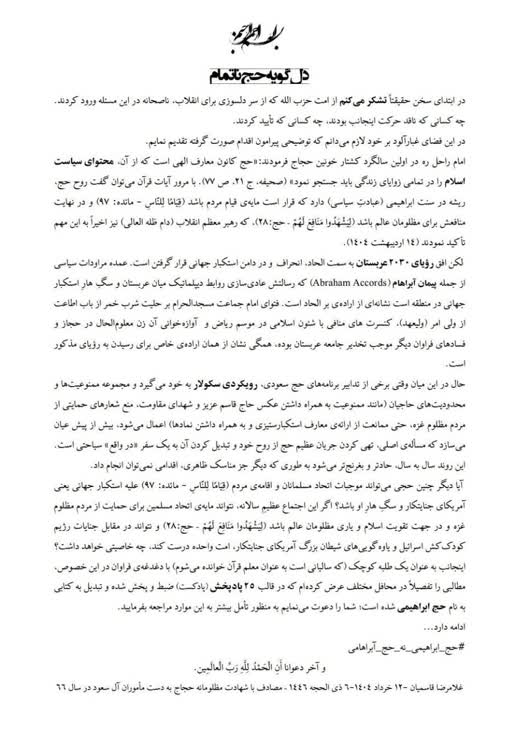 بسم الله الرحمن الرحیم
دل گویه حج ناتمام
در ابتدای سخن حقیقتاً تشکر می‌کنم از امت حزب الله که از سر دلسوزی برای انقلاب، ناصحانه در این مسئله ورود کردند.
چه کسانی که ناقد حرکت اینجانب بودند، چه کسانی که تأیید کردند.
در این فضای غبارآلود بر خود لازم می‌دانم که توضیحی پیرامون اقدام صورت گرفته تقدیم نمایم.
امام راحل ره در اولین سالگرد کشتار خونین حجاج فرمودند:«حج کانون معارف الهی است که از آن، محتوای سیاست
اسلام را در تمامی زوایای زندگی باید جستجو نمود» (صحیفه، ج ۲۱، ص ۷۷). با مرور آیات قرآن می‌توان گفت روح حج،
ریشه در سنت ابراهیمی (عبادتِ سیاسی) دارد که قرار است مایه‌ی قیام مردم باشد (قِیَامًا لِلنَّاسِ - مائده: ۹۷) و در نهایت
منافعش برای مظلومان عالم باشد (لِیَشْهَدُوا مَنَافِعَ لَهُمْ - حج:۲۸)، که رهبر معظم انقلاب (دام ظله العالی) نیز اخیراً به این مهم
تأکید نمودند (۱۴ اردیبهشت ۱۴۰۴).
لکن افق رؤیای ۲۰۳۰ عربستان به سمت الحاد، انحراف و در دامن استکبار جهانی قرار گرفتن است. عمده مراودات سیاسی
از جمله پیمان آبراهام (Abraham Accords) که رسالتش عادی‌سازی روابط دیپلماتیک میان عربستان و سگِ هارِ استکبار
جهانی در منطقه است نشانه‌ای از اراده‌ی بر الحاد است. فتوای امام جماعت مسجدالحرام بر حلیت شرب خمر از باب اطاعت
از ولی امر (ولیعهد)، کنسرت های منافی با شئون اسلامی در موسم ریاض و آوازه‌خوانی آن زن معلوم‌الحال در حجاز و
فسادهای فراوان دیگر موجب تخدیر جامعه عربستان بوده، همگی نشان از همان اراده‌ی خاص برای رسیدن به رؤیای مذکور
است.
حال در این میان وقتی برخی از تدابیر برنامه‌های حج سعودی، رویکردی سکولار به خود می‌گیرد و مجموعه ممنوعیت‌ها و
محدودیت‌های حاجیان (مانند ممنوعیت به همراه داشتن عکس حاج قاسم عزیز و شهدای مقاومت، منع شعارهای حمایتی از
مردم مظلوم غزه، حتی ممانعت از ارائه‌ی معارف استکبارستیزی و به همراه داشتن نمادها) اعمال می‌شود، بیش از پیش عیان
می‌سازد که مسأله‌ی اصلی، تهی کردن جریان عظیم حج از روح خود و تبدیل کردن آن به یک سفر «در واقع» سیاحتی است.
این روند سال به سال، حادتر و بغرنج‌تر می‌شود به طوری که دیگر جز مناسک ظاهری، اقدامی نمی‌توان انجام داد.
آیا دیگر چنین حجی می‌تواند موجبات اتحاد مسلمانان و اقامه‌ی مردم (قِیَامًا لِلنَّاسِ - مائده: ۹۷) علیه استکبار جهانی یعنی
آمریکای جنایتکار و سگ هارِ او باشد؟ اگر این اجتماع عظیم سالانه، نتواند مایه‌ی اتحاد مسلمین برای حمایت از مردم مظلوم
غزه و در جهت تقویت اسلام و یاری مظلومان عالم باشد (لِیَشْهَدُوا مَنَافِعَ لَهُمْ - حج:۲۸) و نتواند در مقابل جنایات رژیم
کودک‌کش اسرائیل و یاوه‌گویی‌های شیطان بزرگ آمریکای جنایتکار، امت واحده درست کند، چه خاصیتی خواهد داشت؟
اینجانب به عنوان یک طلبه کوچک (که سالیانی است به عنوان معلم قرآن خوانده می‌شوم) با دغدغه‌ی فراوان در این خصوص،
مطالبی را تفصیلاً در محافل مختلف عرض کرده‌ام که در قالب ۲۵ پادپخش (پادکست) ضبط و پخش شده و تبدیل به کتابی
به نام حج ابراهیمی شده است؛ شما را دعوت می‌نمایم به منظور تأمل بیشتر به این موارد مراجعه بفرمایید.
ادامه دارد...
#حج_ابراهیمی_نه_حج_آبراهامی
و آخر دعوانا أَنِ الْحَمْدُ لِلَّهِ رَبِّ الْعالَمِین.
غلامرضا قاسمیان -۱۲ خرداد ۱۴۰۴-۶ ذی الحجه ۱۴۴۶ - مصادف با شهادت مظلومانه حجاج به دست مأموران آل سعود در سال ۶۶